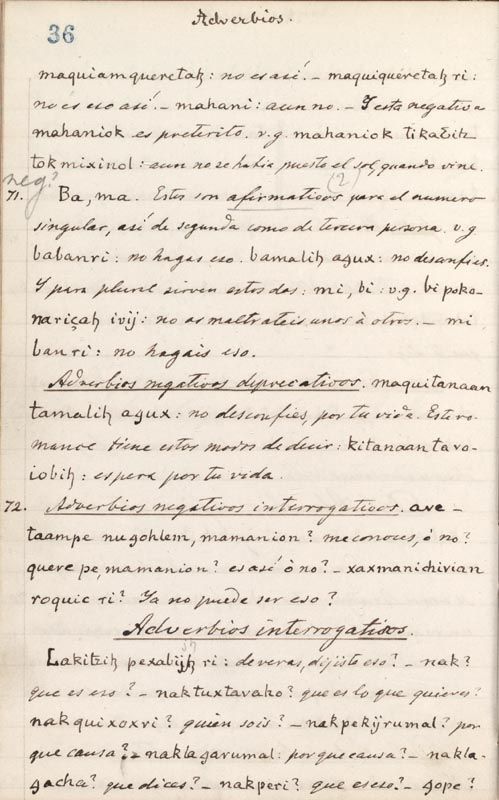 Adverbios.
36
maquiamqueretaꜩ: no es asi. – maquiqueretaꜩ ri:
no és eso así. – mahani: aun no. – Y esta negativa
mahaniok es preterito. v.g. mahaniok tikaꜪitz
tok mixinol: aun no se habia puesto el sol, quando vine.
neg? (2)
71. Ba, ma. Estos son afirmativos para el numero
singular, así de segunda como de tercera persona. v.g
babanri: no hagas eso. bamaliꜧ aꜫux: no desconfies.
Y para plural sirven estos dos: mi, bi: v.g. bi poko-
nariçaꜧ ivij: no os maltrateis unos à otros. – mi
banri: no hagais eso.
Adverbios negativos deprecativos. maquitanaan
tamaliꜧ aꜫux: no desconfies, por tu vida. Este ro-
mance tiene estos modos de decir: kitanaantavo-
iobiꜧ: espera por tu vida.
72. Adverbios negativos interrogativos. ave-
taampe nuꜫohlem, mamanion? me conoces, ó no?
quere pe, mamanion? es así ò no? – xaxmanichivian
roquic ri? Ya no puede ser eso?
Adverbios interrogatisos.
Lakitziꜧ pexabijꜧ ri: de veras, dijiste eso? – nak?
que es eso? – naktuxtavaho? que es lo que quieres?
nak quixoxri? quien sois? – nakpekijrumal? por
que causa? – naklaꜫarumal: por que causa? – nakla-
ꜫacha? que dices? – nakperi? que es eso? – ꜫope?